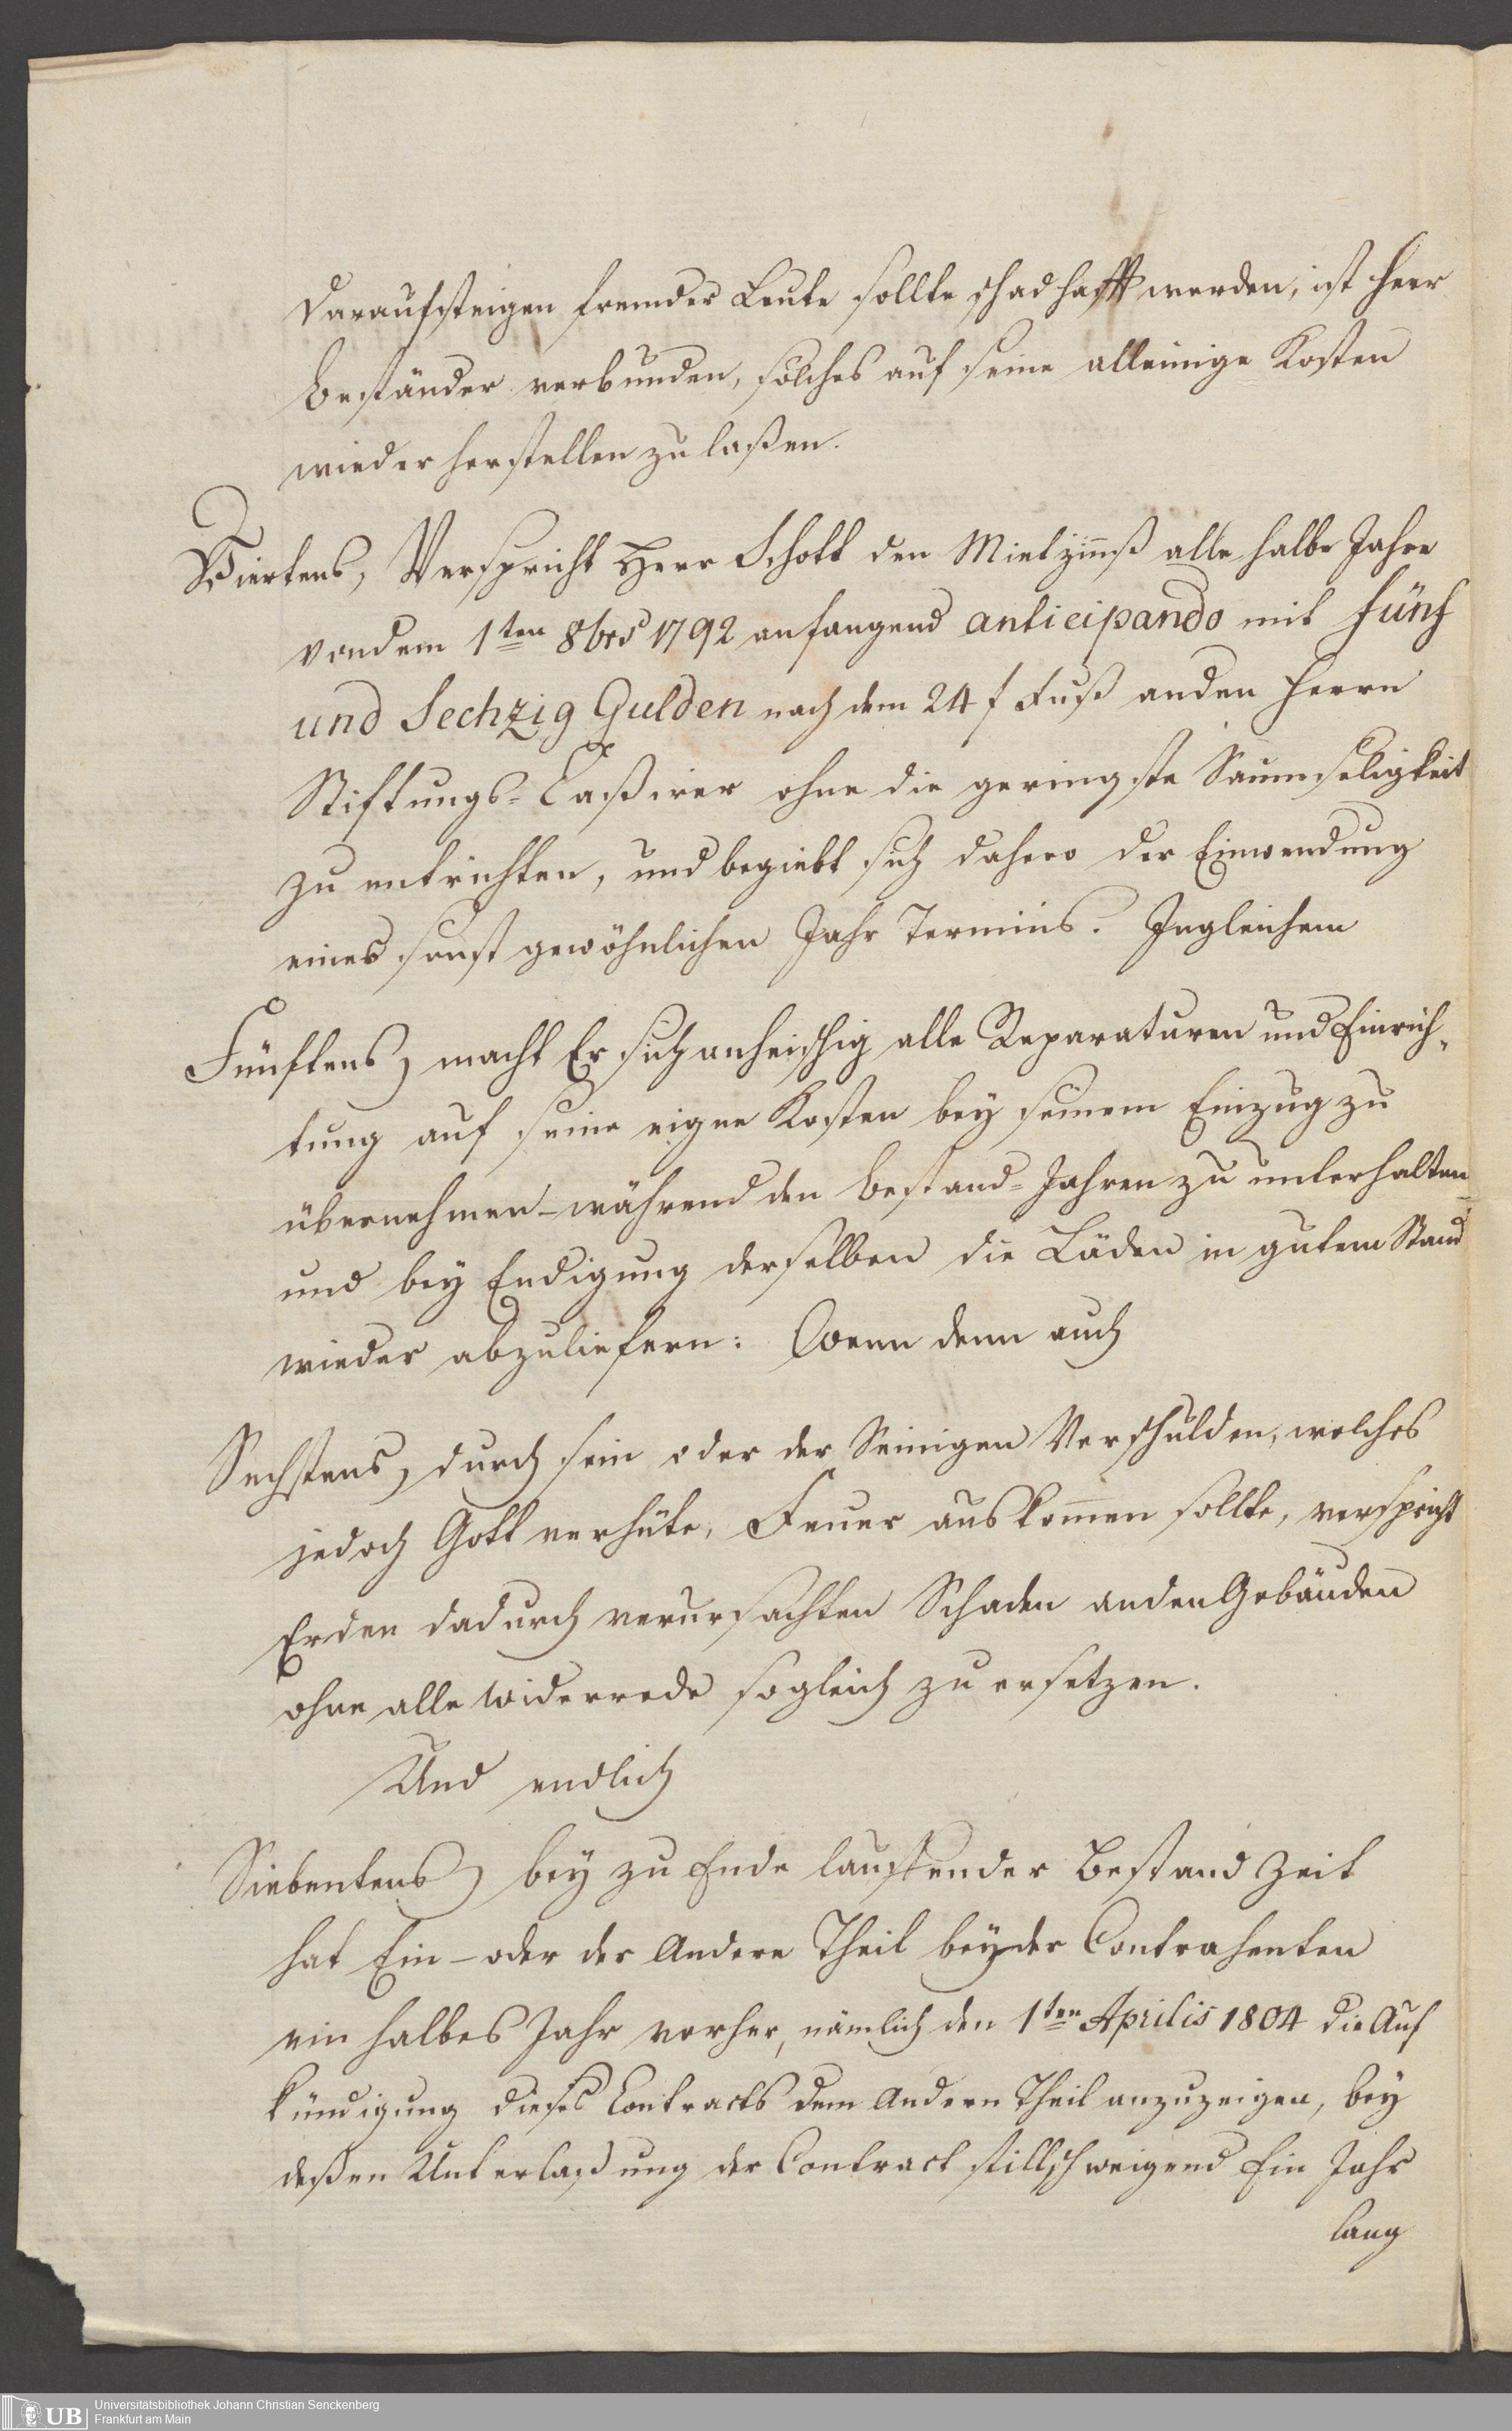 daraufsteigen fremder Leute sollte schadhafft werden, ist Herr
Beständer verbunden, solches auf seine alleinige Kosten
wieder herstellen zu laßen.
Viertens, Verspricht Herr Schott den Mietzinnß alle halbe Jahre
von dem 1ten 8brs 1792 anfangend anticipando mit fünf
und Sechzig Gulden nach dem 24 f Fuß an den Herrn
Stiftungs-Caßirer ohne die geringste Saumseligkeit
zu entrichten, und begiebt sich dahero der Einwendung
eines sonst gewöhnlichen Jahr Termins. Ingleichem
Fünftens, macht Er sich anheischig alle Reparaturen und Einrich-
tung auf seine eigne Kosten bey seinem Einzug zu
übernehmen - während den Bestand-Jahren zu unterhalten -
und bey Endigung derselben die Läden in gutem Stand
wieder abzuliefern: Wenn denn auch
Sechstens, durch sein oder der Seinigen Verschulden, welches
jedoch Gott verhüte, Feuer auskommen sollte, verspricht
Er den dadurch verursachten Schaden an den Gebäuden
ohne alle Widerrede sogleich zu ersetzen.
Und endlich
Siebentens, bey zu Ende lauffender Bestand Zeit
hat Ein - oder der Andere Theil beyder Contrahenten
ein halbes Jahr vorher, nämlich den 1ten Aprilis 1804 die Auf
kündigung dieses Contracts dem Andern Theil anzuzeigen, bey
deßen Unterlaßung der Contract stillschweigend Ein Jahr
lang
UB
Universitätsbibliothek Johann Christian Senckenberg
Frankfurt am Main